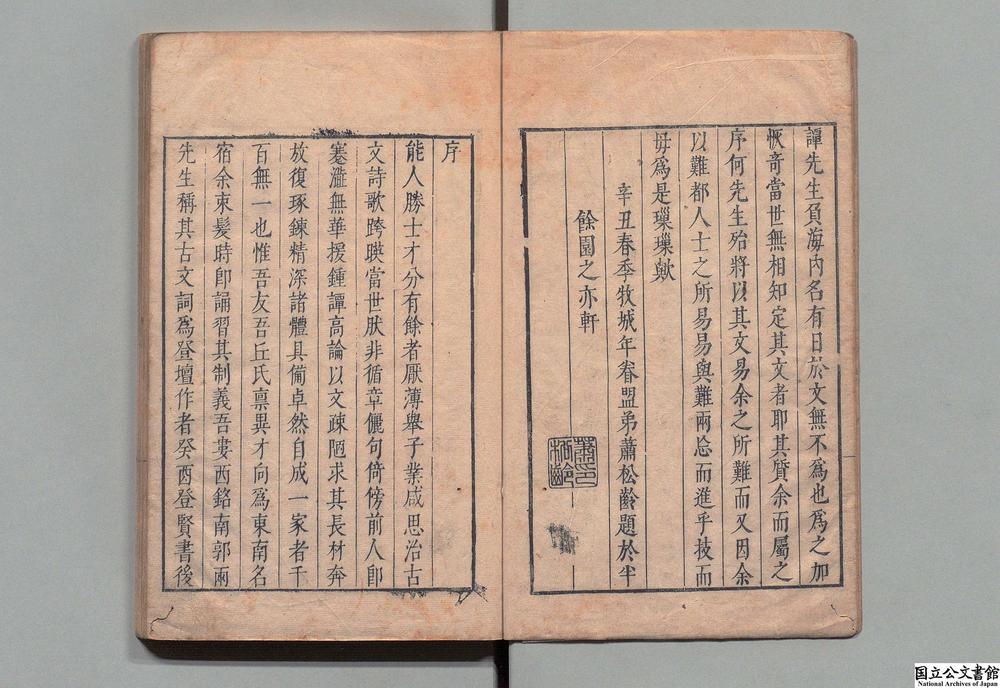 譚先生負海內名有日於文無不為也為之加
恢奇當世無相知定其文者耶其貿余而屬之
序何先生殆將以其文易余之所難而又因余
以難都人士之所易易與難兩忘而進乎技而
毋為是璅璅歟
辛丑春季牧城年眷盟弟蕭松齡題於半
餘園之亦軒
蕭印松齡
序
能人勝士才分有餘者厭薄舉子業咸思治古
文詩歌跨暎當世肰非循章儷句倚傍前人卽
蹇澁無華援鍾譚高論以文疎陋求其長材奔
放復琢鍊精深諸體具備卓然自成一家者千
百無一也惟吾友吾丘氏禀異才向為東南名
宿余束髮時卽誦習其制義吾婁西銘南郭兩
先生稱其古文詞為登壇作者癸酉登賢書後
国立公文書館
National Archives of Japan